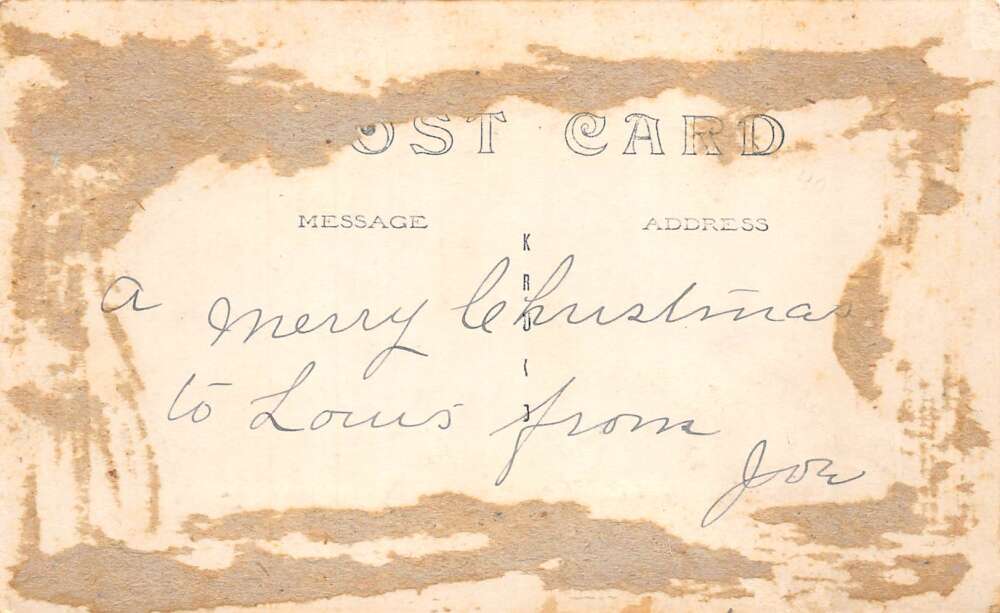 OST CARD
MESSAGE
ADDRESS
KRUXO
a
Merry Christmas
to Louis from
Joe